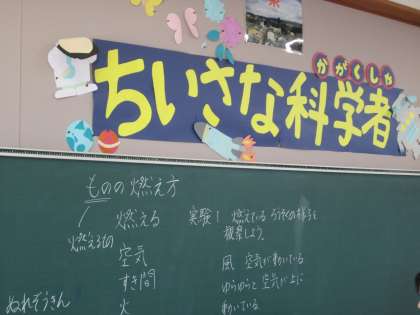 かがくしゃ
ちいさな科学者
ものの燃え方
燃える
燃えるもの
空気
すき間
火
ぬれぞうきん
実験1 燃えているろうそくの様子を
観察しよう。
風 空気が動いている
ゆらゆらと空気が上に
動いている。